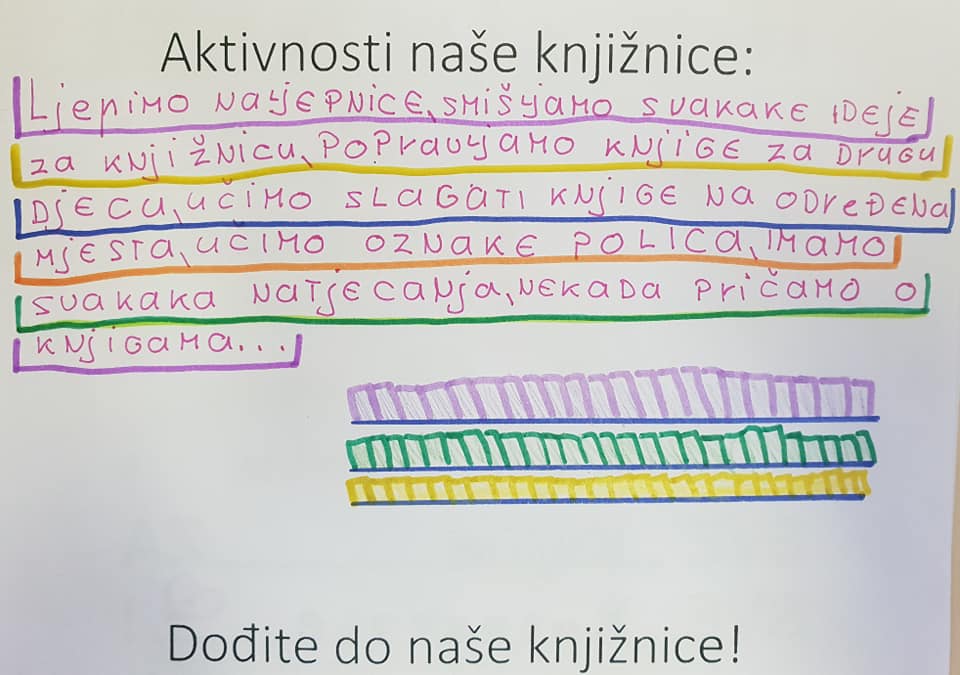 Aktivnosti naše knjižnice:
Ljepimo naljepnice, smišljamo svakake ideje
za knjižnicu, popravljamo knjige za drugu
djecu, učimo slagati knjige na određena
mjesta, učimo oznake polica, imamo
svakaka natjecanja, nekada pričamo o
knjigama...
Dođite do naše knjižnice!